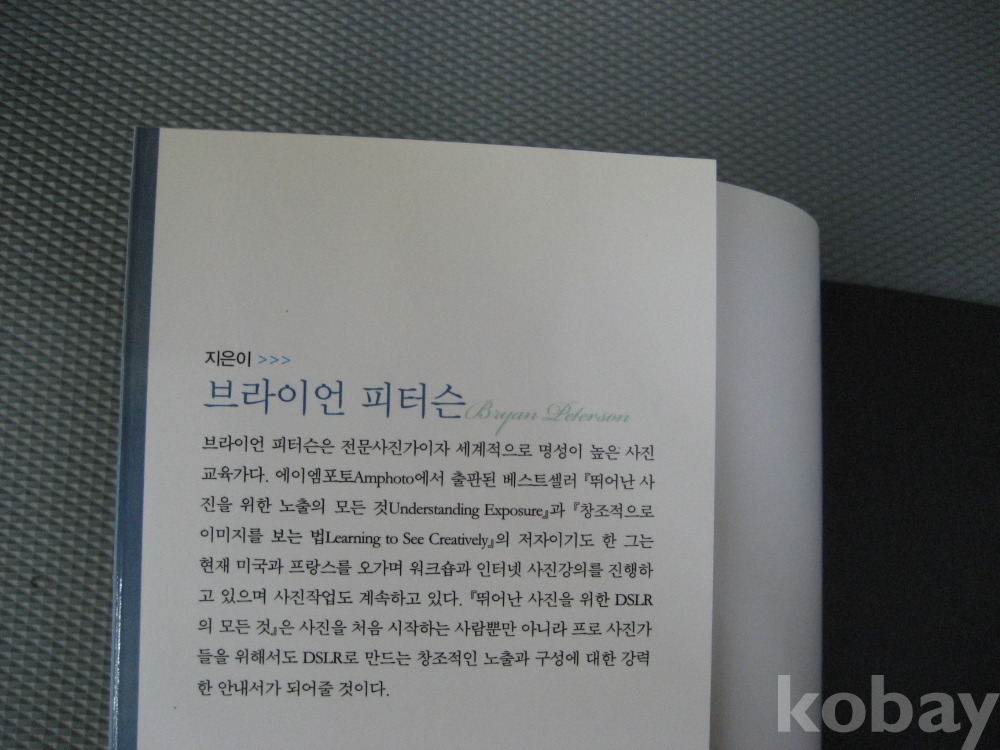 지은이 >>>
브라이언 피터슨 Bryan Peterson
브라이언 피터슨은 전문사진가이자 세계적으로 명성이 높은 사진
교육가다. 에이엠포토Amphoto에서 출판된 베스트셀러 『뛰어난 사
진을 위한 노출의 모든 것Understanding Exposure』과 『창조적으로
이미지를 보는 법Learning to See Creatively』의 저자이기도 한 그는
현재 미국과 프랑스를 오가며 워크숍과 인터넷 사진강의를 진행하
고 있으며 사진작업도 계속하고 있다. 『뛰어난 사진을 위한 DSLR
의 모든 것』은 사진을 처음 시작하는 사람뿐만 아니라 프로 사진가
들을 위해서도 DSLR로 만드는 창조적인 노출과 구성에 대한 강력
한 안내서가 되어줄 것이다.
kobay